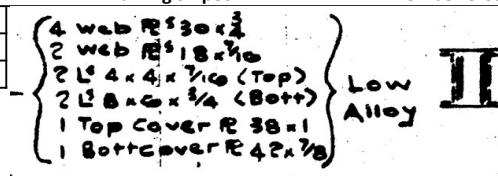 4 web PLs 30 x 3/4
2 web PLs 18 x 7/16
2 Ls 4 x 4 x 7/16 (Top)
2 Ls 8 x 6 x 3/4 (Bott)
1 Top Cover PL 38 x 1
1 Bott Cover PL 42 x 7/8
Low
Alloy